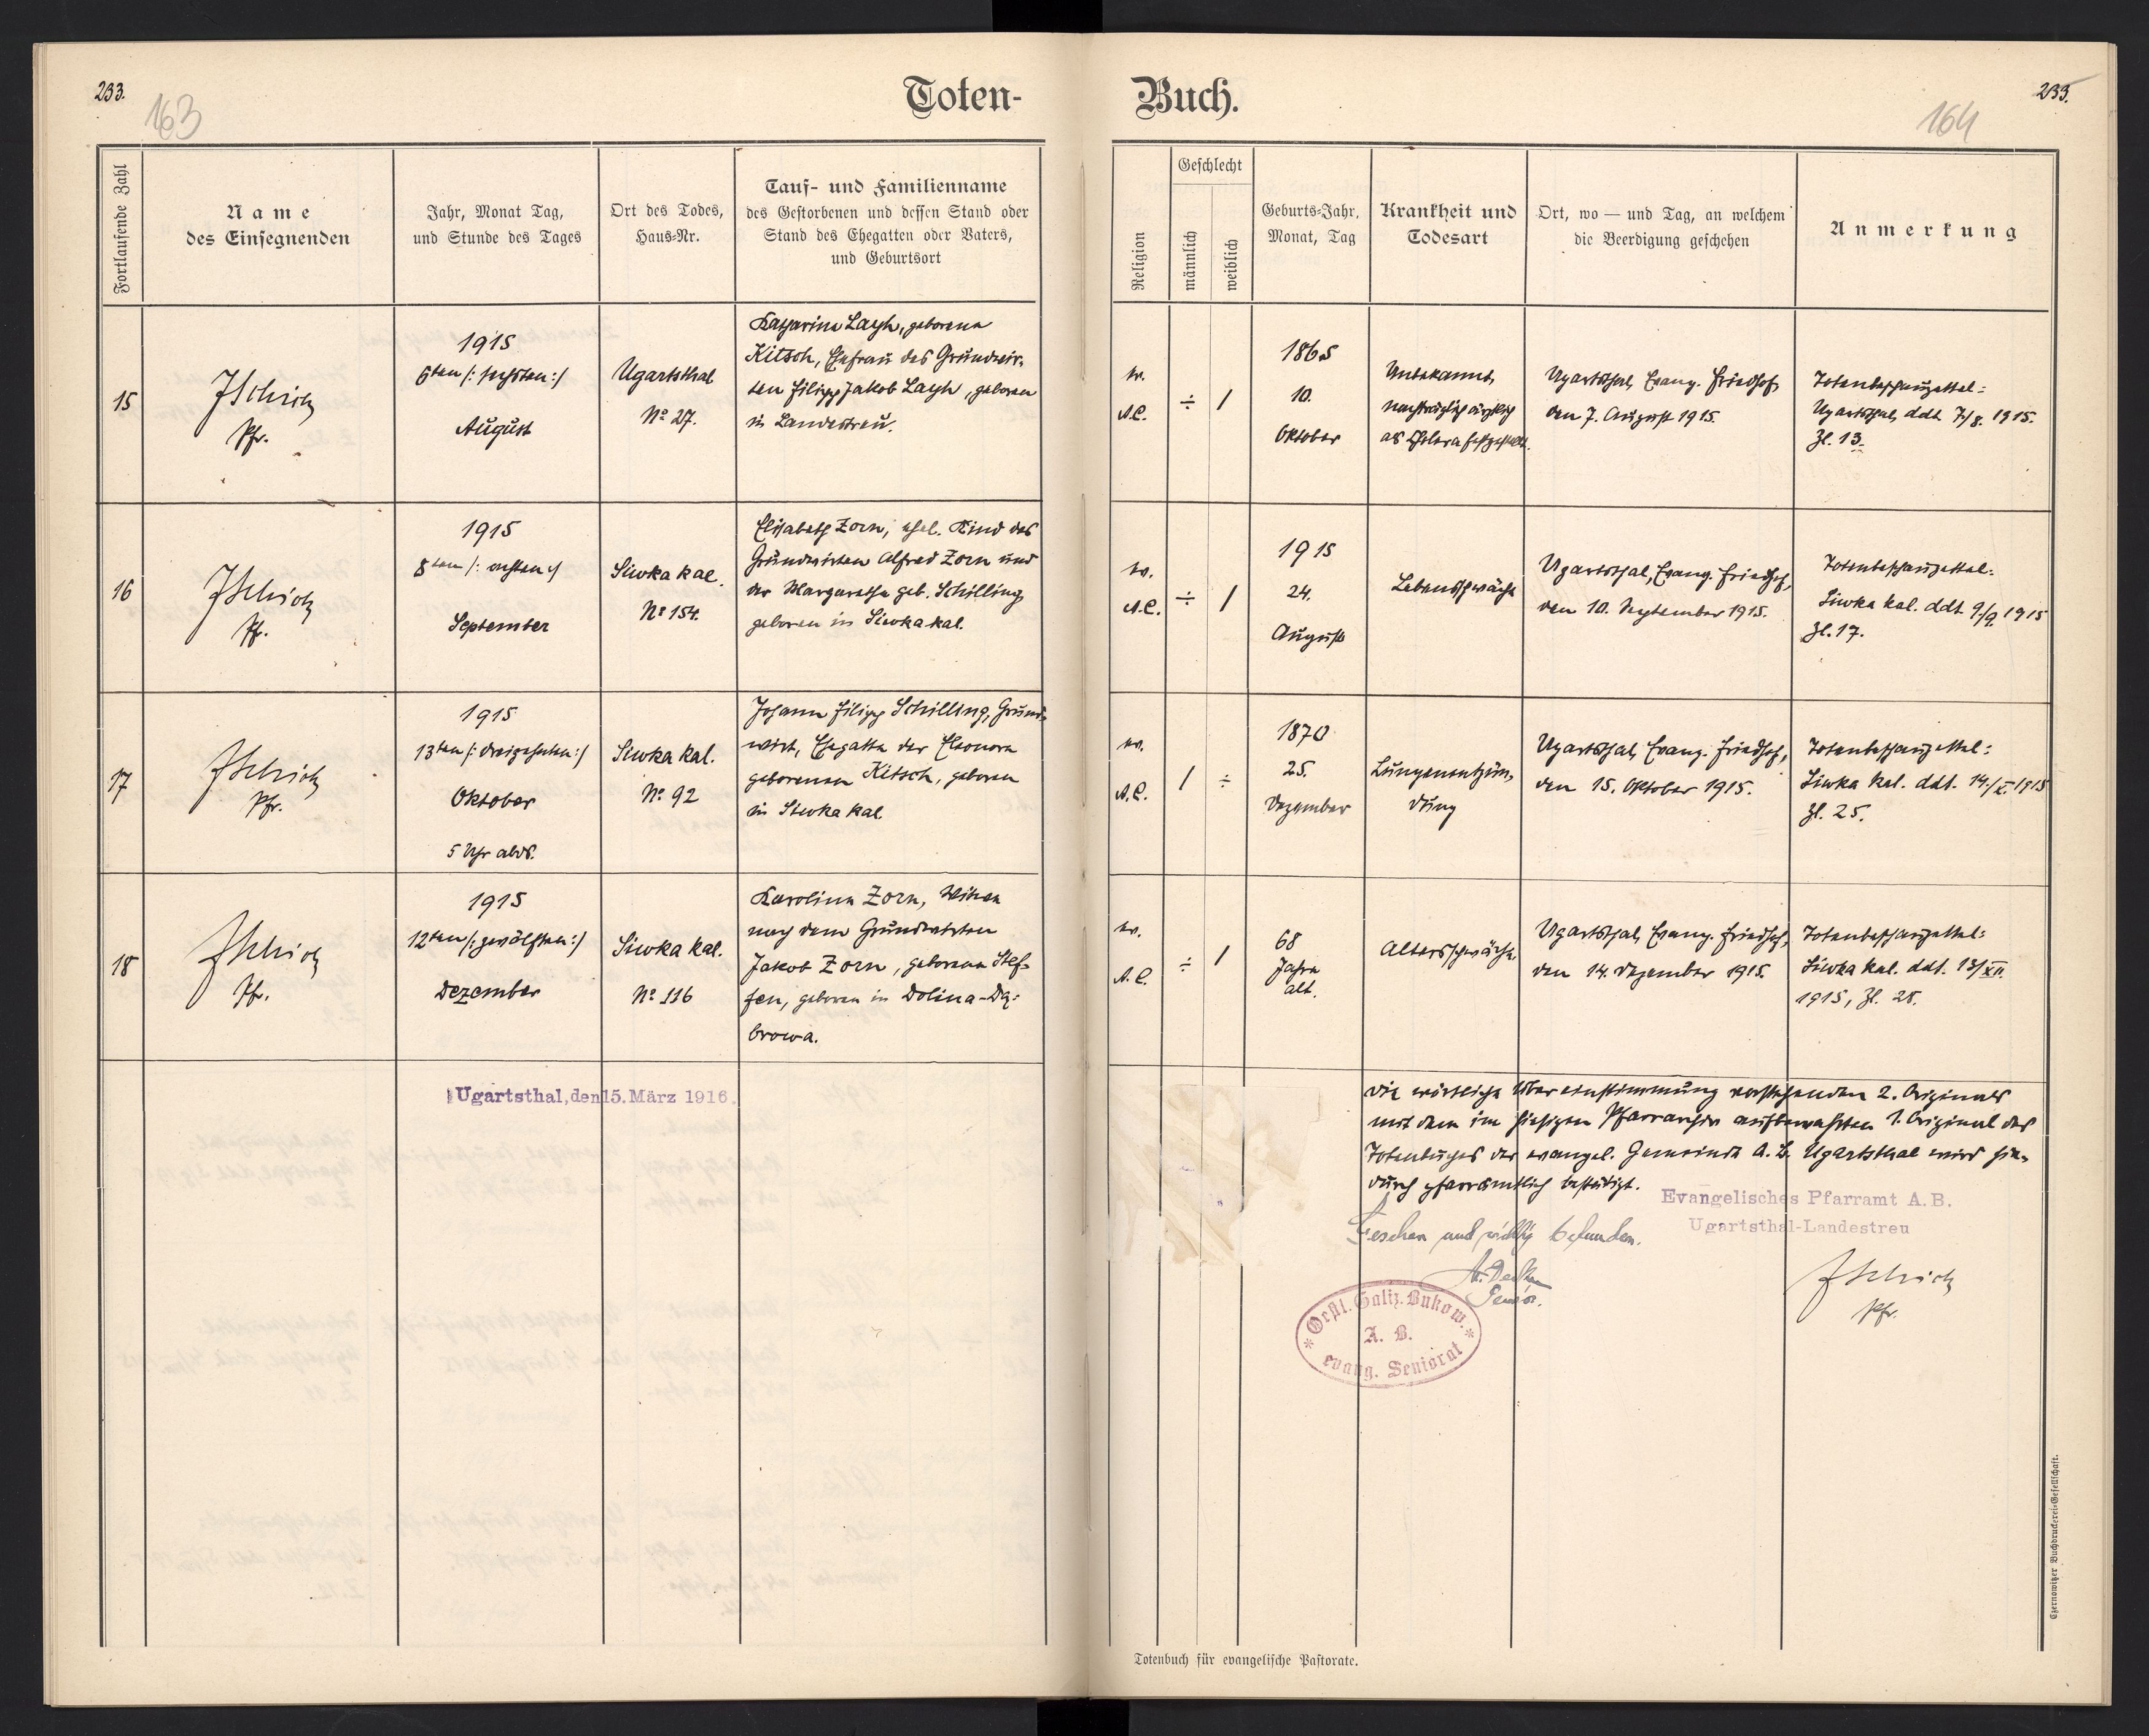 233.
163
Toten-
Fortlaufende Zahl
Name
des Einsegnenden
Jahr, Monat Tag,
und Stunde des Tages
Ort des Todes,
Haus-Nr.
Tauf- und Familienname
des Gestorbenen und dessen Stand oder
Stand des Ehegatten oder Vaters,
und Geburtsort
15
Pfr.
1915
6ten /: sechsten :/
August
Ugartsthal
No 27.
Katharina Layh, geborene
Kitsch, Ehefrau des Grundwir-
ten Filipp Jakob Layh, geboren
in Landestreu.
16
Pfr.
1915
8ten /: achten :/
September
Siwka kal.
No 154.
Elisabeth Zorn, ehel. Kind des
Grundwirten Alfred Zorn und
der Margarethe geb. Schilling
geboren in Siwka kal.
17
Pfr.
1915
13ten /: dreizehnten :/
Oktober
5 Uhr abds.
Siwka kal.
No 92
Johann Filipp Schilling, Grund-
wirt, Ehegatte der Eleonora
geborenen Kitsch, geboren
in Siwka kal.
18
Pfr.
1915
12ten /: zwölften :/
Dezember
Siwka kal.
No 116
Karolina Zorn, Witwe
nach dem Grundwirten
Jakob Zorn, geborene Stef-
fen, geboren in Dolina-Dą-
browa.
Ugartsthal, den 15. März 1916.
Buch.
164
233.
Religion
Geschlecht
männlich
weiblich
Geburts-Jahr,
Monat, Tag
Krankheit und
Todesart
Ort, wo — und Tag, an welchem
die Beerdigung geschehen
Anmerkung
ev.
A.C.
÷
/
1865
10.
Oktober
Unbekannt,
nachträglich ärztlich
als Cholera festgestellt.
Ugartsthal, Evang. Friedhof,
den 7. August 1915.
Totenbeschauzettel:
Ugartsthal, ddt. 7/8. 1915.
Zl. 13.
ev.
A.C.
÷
/
1915
24.
August
Lebensschwäche
Ugartsthal, Evang. Friedhof,
den 10. September 1915.
Totenbeschauzettel:
Siwka kal. ddt. 9/9. 1915
Zl. 17.
ev.
A.C.
/
÷
1870
25.
Dezember
Lungenentzün-
dung
Ugartsthal, Evang. Friedhof,
den 15. Oktober 1915.
Totenbeschauzettel:
Siwka kal. ddt. 14/X. 1915
Zl. 25.
ev.
A.C.
÷
/
68
Jahre
alt.
Altersschwäche.
Ugartsthal, Evang. Friedhof,
den 14. Dezember 1915.
Totenbeschauzettel:
Siwka kal. ddt. 13/XII.
1915, Zl. 28.
Die wörtliche Übereinstimmung vorstehenden 2. Originals
mit dem im hiesigen Pfarrarchiv aufbewahrten 1. Original des
Totenbuches der evangel. Gemeinde A. B. Ugartsthal wird hie-
durch pfarrämtlich bestätigt.
Evangelisches Pfarramt A.B.
Ugartsthal-Landestreu
Gesehen und richtig befunden.
Senior.
Pfr.
Oestl. Galiz. Bukow.
A. B.
evang. Seniorat
Totenbuch für evangelische Pastorate.
Czernowitzer Buchdruckerei-Gesellschaft.